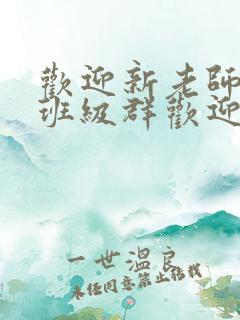 歡迎新老師
班級群歡迎
一世溫良
未经同意禁止转载